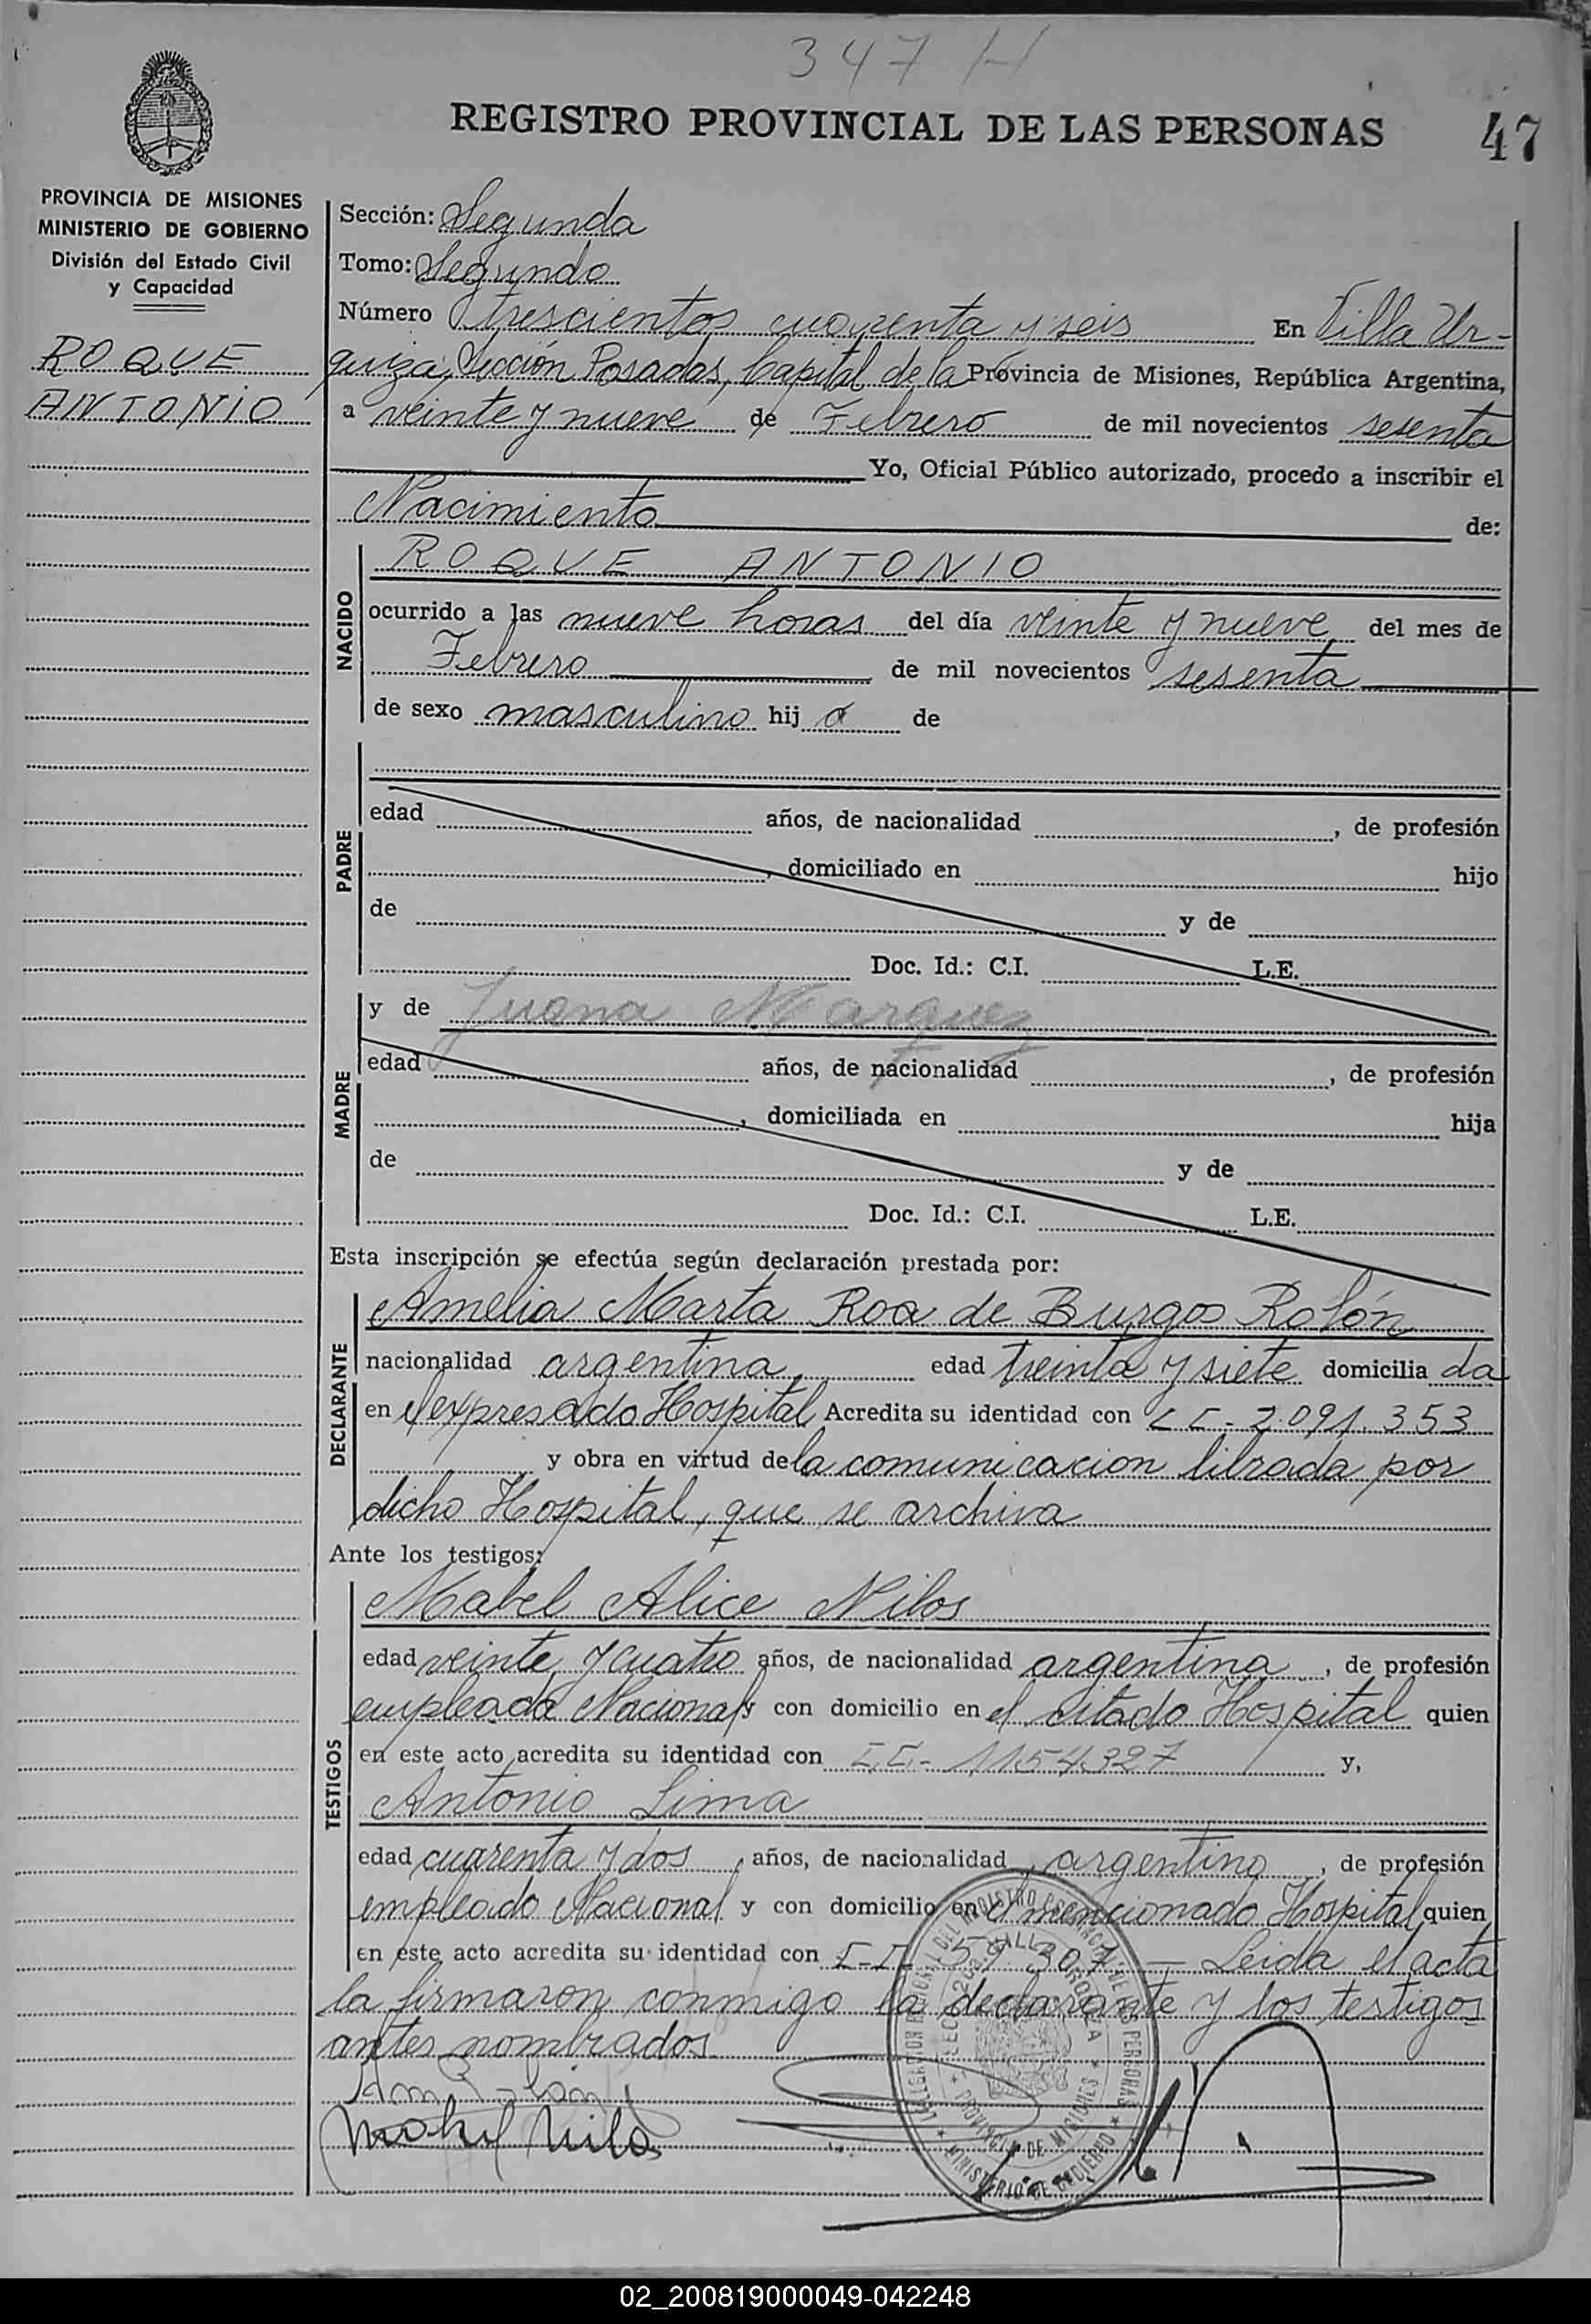 347 H
REGISTRO PROVINCIAL DE LAS PERSONAS
47
PROVINCIA DE MISIONES
MINISTERIO DE GOBIERNO
División del Estado Civil
y Capacidad
ROQUE
ANTONIO
Sección: Segunda
Tomo: Segundo
Número trescientos cuarenta y seis En Villa Ur-
quiza, Sección Posadas, Capital de la Provincia de Misiones, República Argentina,
a veinte y nueve de Febrero de mil novecientos sesenta
Yo, Oficial Público autorizado, procedo a inscribir el
Nacimiento de:
NACIDO
ROQUE ANTONIO
ocurrido a las nueve horas del día veinte y nueve del mes de
Febrero de mil novecientos sesenta
de sexo masculino hij o de
PADRE
edad años, de nacionalidad , de profesión
, domiciliado en hijo
de y de
Doc. Id.: C.I. L.E.
MADRE
y de Juana Marquez
edad años, de nacionalidad , de profesión
, domiciliada en hija
de y de
Doc. Id.: C.I. L.E.
Esta inscripción se efectúa según declaración prestada por:
DECLARANTE
Amelia Marta Roa de Burgos Rolón
nacionalidad argentina edad treinta y siete domicilia da
en el expresado Hospital Acredita su identidad con 2.091.353
y obra en virtud de la comunicacion librada por
dicho Hospital, que se archiva
Ante los testigos:
TESTIGOS
Mabel Alice Nilos
edad veinte y cuatro años, de nacionalidad argentina , de profesión
empleada Nacional y con domicilio en el citado Hospital quien
en este acto acredita su identidad con 1154327 y,
Antonio Lima
edad cuarenta y dos , años, de nacionalidad argentino , de profesión
empleado Nacional y con domicilio en el mencionado Hospital quien
en este acto acredita su identidad con 307 — Leida el acta
la firmaron conmigo la declarante y los testigos
antes nombrados.
Mabel Nilos
PROVINCIA DE MISIONES
MINISTERIO DE GOBIERNO
02_200819000049-042248